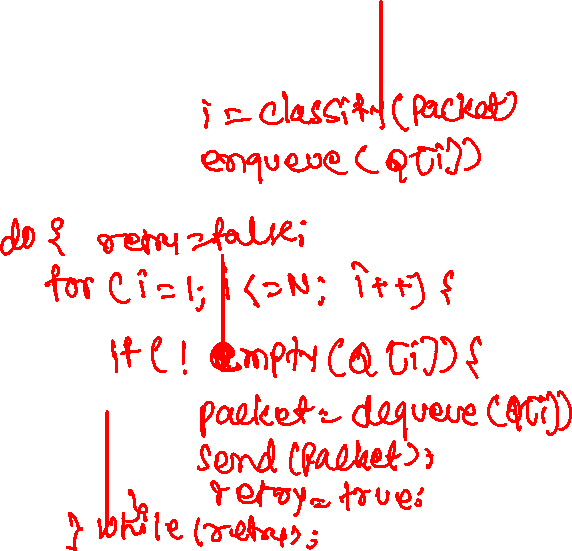 i = classify(packet)
enqueue(Q[i])
do { retry=false;
for (i=1; i<=N; i++) {
if (! empty(Q[i])) {
packet = dequeue(Q[i])
send(packet);
retry=true;
}}
} while (retry);